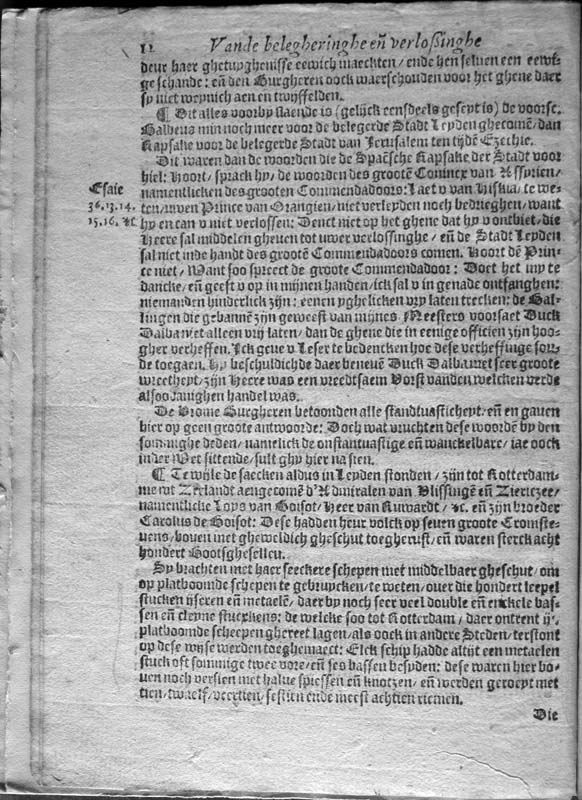 12 Vande belegheringhe eñ verlossinghe
deur haer ghetuyghenisse eewich maeckten / ende hen seluen een eewi-
ge schande: eñ den Burgheren oock waerschouden voor het ghene daer
sy niet weynich aen en twyffelden.
¶ Dit alles voorby staende is (gelijck eensdeels geseyt is) de voorsc.
Galbeus min noch meer voor de belegerde Stadt Leyden ghecomē / dan
Rapsake voor de belegerde Stadt van Jerusalem ten tijdē Ezechie.
Dit waren dan de woorden die de Spaēsche Rapsake der Stadt voor
hiel: Hoort / sprack hy / de woorden des grootē Conincx van Assyrien /
Esaie
namentlicken des grooten Commendadoors: Laet v van Hiskia / te we-
36.13.14.
ten / uwen Prince van Orangien / niet verleyden noch bedrieghen / want
15.16. &c
hy en can v niet verlossen: Denct niet op het ghene dat hy v ontbiet / die
Heere sal middelen gheuen tot uwer verlossinghe / eñ de Stadt Leyden
sal niet in de handt des grootē Commendadoors comen. Hoort dē Prin-
ce niet / Want soo spreect de groote Commendadoor: Doet het my te
dancke / eñ geeft v op in mijnen handen / ick sal v in genade ontfanghen:
niemanden hinderlick zijn: eenen yghelicken vry laten trecken: de Bal-
lingen die gebannē zijn geweest van mijnes Meesters voorsaet Duck
Dalba niet alleen vrij laten / dan de ghene die in eenige officien zijn hoo-
gher verheffen. Ick geue v Leser te bedencken hoe dese verheffinge sou-
de toegaen. Hy beschuldichde daer beneuē Duck Dalba met seer groote
wreetheyt / zijn Heere was een vreedtsaem Vorst vanden welcken verde
alsoodanighen handel was.
De Vrome Burgheren betoonden alle standtuasticheyt / eñ en gauen
hier op geen groote antwoorde: Doch wat vruchten dese woordē by den
sommighe deden / namelick de onstantuastige eñ wanckelbare / iae oock
in der Wet sittende / sult ghy hier na sien.
¶ Terwijle de saecken aldus in Leyden stonden / zijn tot Rotterdam-
me wt Zeelandt aengecomē d'Admiralen van Vlissingē eñ Ziericzee /
namentlicke Loys van Boisot / Heer van Ruwardt / &c. eñ zijn broeder
Carolus de Boisot: Dese hadden heur volck op seuen groote Cromste-
uens / bouen met gheweldich gheschut toegherust / eñ waren sterck acht
hondert Bootsghesellen.
Sy brachten met haer seeckere schepen met middelbaer gheschut / om
op platboomde schepen te gebruycken / te weten / ouer die hondert leepel
stucken ijseren eñ metaelē / daer by noch seer veel double eñ enckele bas-
sen eñ cleyne stucxkens: de welcke soo tot Rotterdam / daer ontrent
platboomde scheepen ghereet lagen / als oock in andere Steden / terstont
op dese wyse werden toeghemaect: Elck schip hadde altijt een metaelen
stuck oft sommige twee vore / eñ ses bassen besyden: dese waren hier bo-
uen noch versien met halue spiessen eñ knotzen / eñ werden geroeyt met
tien / twaelf / veertien / sestien ende meest achtien riemen.
Die